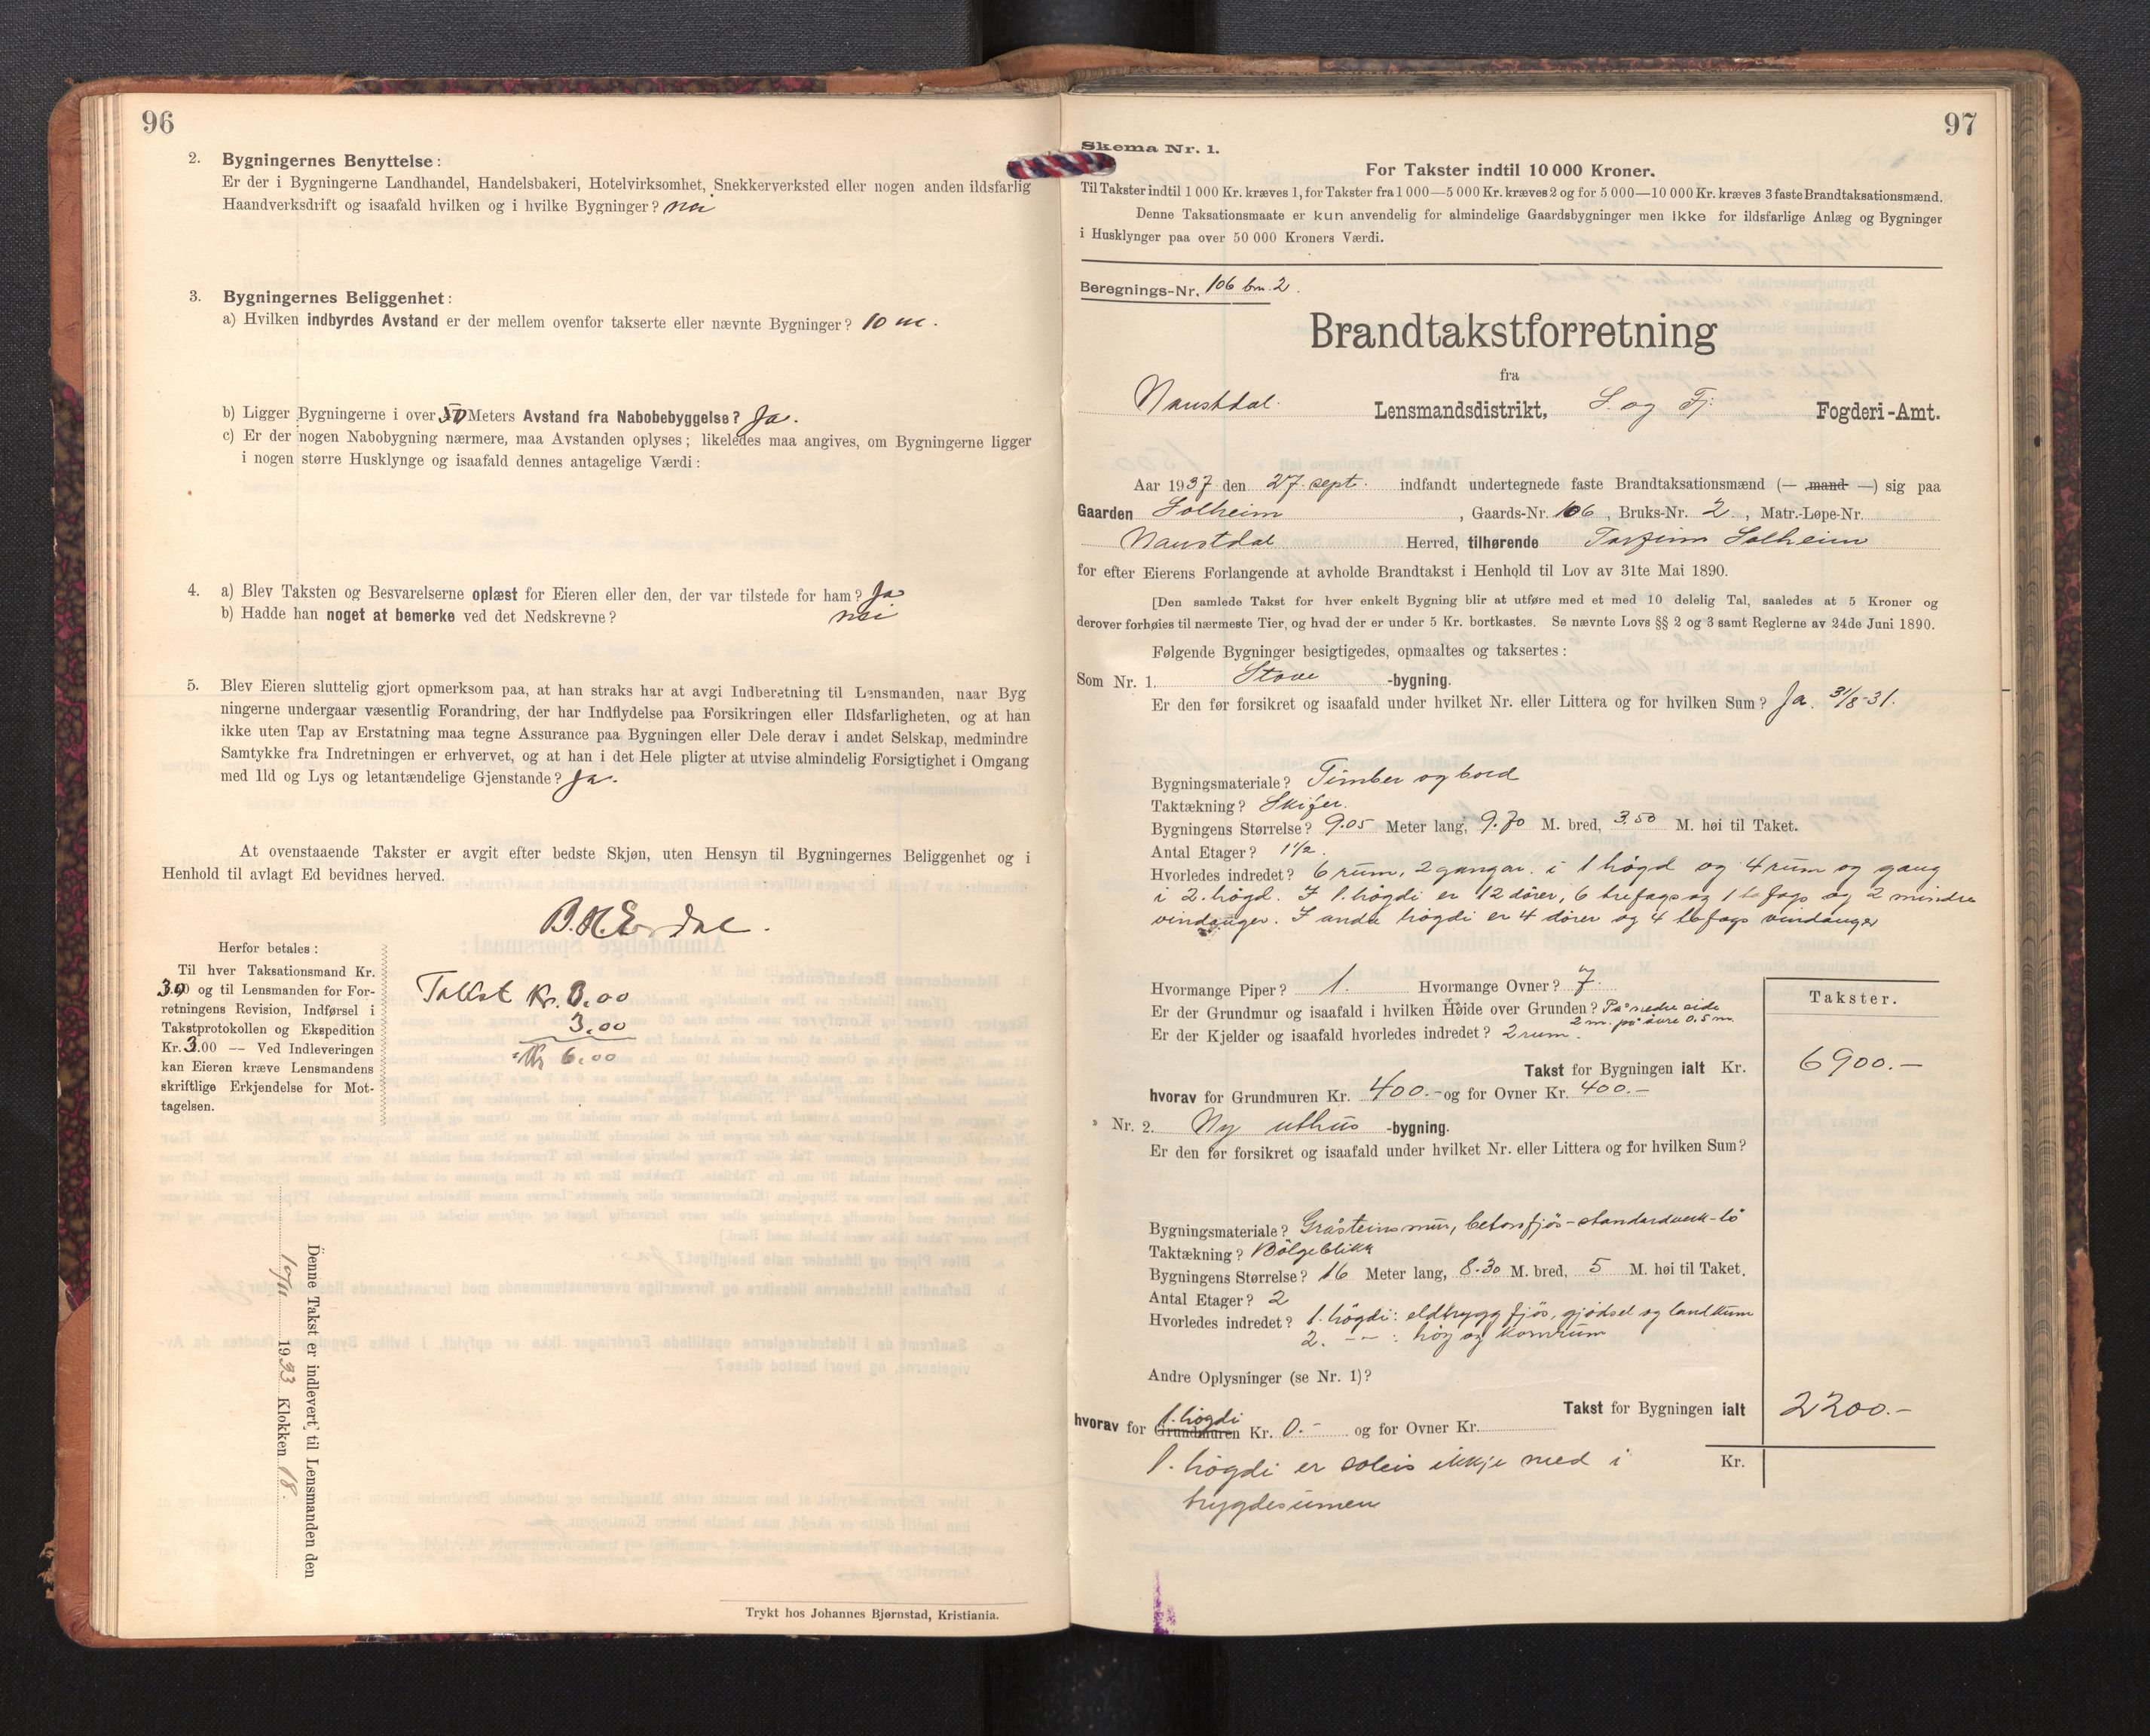 96
2. Bygningernes Benyttelse:
Er der i Bygningerne Landhandel, Handelsbakeri, Hotelvirksomhet, Snekkerverksted eller nogen anden ildsfarlig
Haandverksdrift og isaafald hvilken og i hvilke Bygninger? nei
3. Bygningernes Beliggenhet:
a) Hvilken indbyrdes Avstand er der mellem ovenfor takserte eller nævnte Bygninger? 10 m.
b) Ligger Bygningerne i over 50 Meters Avstand fra Nabobebyggelse? Ja.
c) Er der nogen Nabobygning nærmere, maa Avstanden oplyses; likeledes maa angives, om Bygningerne ligger
i nogen større Husklynge og isaafald dennes antagelige Værdi:
4. a) Blev Taksten og Besvarelserne oplæst for Eieren eller den, der var tilstede for ham? Ja
b) Hadde han noget at bemerke ved det Nedskrevne? nei
5. Blev Eieren sluttelig gjort opmerksom paa, at han straks har at avgi Indberetning til Lensmanden, naar Byg
ningerne undergaar væsentlig Forandring, der har Indflydelse paa Forsikringen eller Ildsfarligheten, og at han
ikke uten Tap av Erstatning maa tegne Assurance paa Bygningen eller Dele derav i andet Selskap, medmindre
Samtykke fra Indretningen er erhvervet, og at han i det Hele pligter at utvise almindelig Forsigtighet i Omgang
med Ild og Lys og letantændelige Gjenstande? Ja.
At ovenstaaende Takster er avgit efter bedste Skjøn, uten Hensyn til Bygningernes Beliggenhet og i
Henhold til avlagt Ed bevidnes herved.
B. H. Erdal.
Herfor betales:
Til hver Taksationsmand Kr.
3.00 og til Lensmanden for For-
retningens Revision, Indførsel i
Takstprotokollen og Ekspedition
Kr. 3.00 — Ved Indleveringen
kan Eieren kræve Lensmandens
skriftlige Erkjendelse for Mot-
tagelsen.
Takst Kr. 3.00
3.00
Kr 6.00
Denne Takst er indlevert til Lensmanden den
10/11 1933 Klokken 18.
Trykt hos Johannes Bjørnstad, Kristiania.
97
Skema Nr. 1.
For Takster indtil 10 000 Kroner.
Til Takster indtil 1 000 Kr. kræves 1, for Takster fra 1 000—5 000 Kr. kræves 2 og for 5 000—10 000 Kr. kræves 3 faste Brandtaksationsmænd.
Denne Taksationsmaate er kun anvendelig for almindelige Gaardsbygninger men ikke for ildsfarlige Anlæg og Bygninger
i Husklynger paa over 50 000 Kroners Værdi.
Beregnings-Nr. 106 bn. 2.
Brandtakstforretning
fra
Naustdal Lensmandsdistrikt, S. og Fj. Fogderi-Amt.
Aar 1937 den 27. sept. indfandt undertegnede faste Brandtaksationsmænd (— mand —) sig paa
Gaarden Solheim, Gaards-Nr. 106, Bruks-Nr. 2, Matr.-Løpe-Nr.
Naustdal Herred, tilhørende Torfinn Solheim
for efter Eierens Forlangende at avholde Brandtakst i Henhold til Lov av 31te Mai 1890.
[Den samlede Takst for hver enkelt Bygning blir at utføre med et med 10 delelig Tal, saaledes at 5 Kroner og
derover forhøies til nærmeste Tier, og hvad der er under 5 Kr. bortkastes. Se nævnte Lovs §§ 2 og 3 samt Reglerne av 24de Juni 1890.
Følgende Bygninger besigtigedes, opmaaltes og taksertes:
Som Nr. 1. Stove -bygning.
Er den før forsikret og isaafald under hvilket Nr. eller Littera og for hvilken Sum? Ja. 31/8-31.
Bygningsmateriale? Timber og bord
Taktækning? Skifer.
Bygningens Størrelse? 9.05 Meter lang, 9.70 M. bred, 3.50 M. høi til Taket.
Antal Etager? 1 1/2.
Hvorledes indredet? 6 rum, 2 gangar i 1 høgd og 4 rum og gang
i 2. høgd. I 1. høgdi er 12 dører, 6 trefags og 1 to fags og 2 mindre
vindauger. I andre høgdi er 4 dører og 4 tofags vindauger
Hvormange Piper? 1. Hvormange Ovner? 7.
Er der Grundmur og isaafald i hvilken Høide over Grunden? På nedre side
2 m. på øvre 0.5 m.
Er der Kjelder og isaafald hvorledes indredet? 2 rum.
Takster.
Takst for Bygningen ialt Kr. 6900.—
hvorav for Grundmuren Kr. 400.- og for Ovner Kr. 400.—
» Nr. 2. Ny uthus -bygning.
Er den før forsikret og isaafald under hvilket Nr. eller Littera og for hvilken Sum?
Bygningsmateriale? Gråsteinsmur, betonfjøs - standardverk-lø
Taktækning? Bølgeblikk
Bygningens Størrelse? 16 Meter lang, 8.30 M. bred, 5 M. høi til Taket.
Antal Etager? 2
Hvorledes indredet? 1. høgdi: eldtrygg fjøs, gjødsel og landkum
2. -- : høy og kornrum
Andre Oplysninger (se Nr. 1)?
Takst for Bygningen ialt 2200.—
hvorav for Grundmuren 1. høgdi Kr. 0.- og for Ovner Kr.
1. høgdi er soleis ikkje med i Kr.
trygdesumen